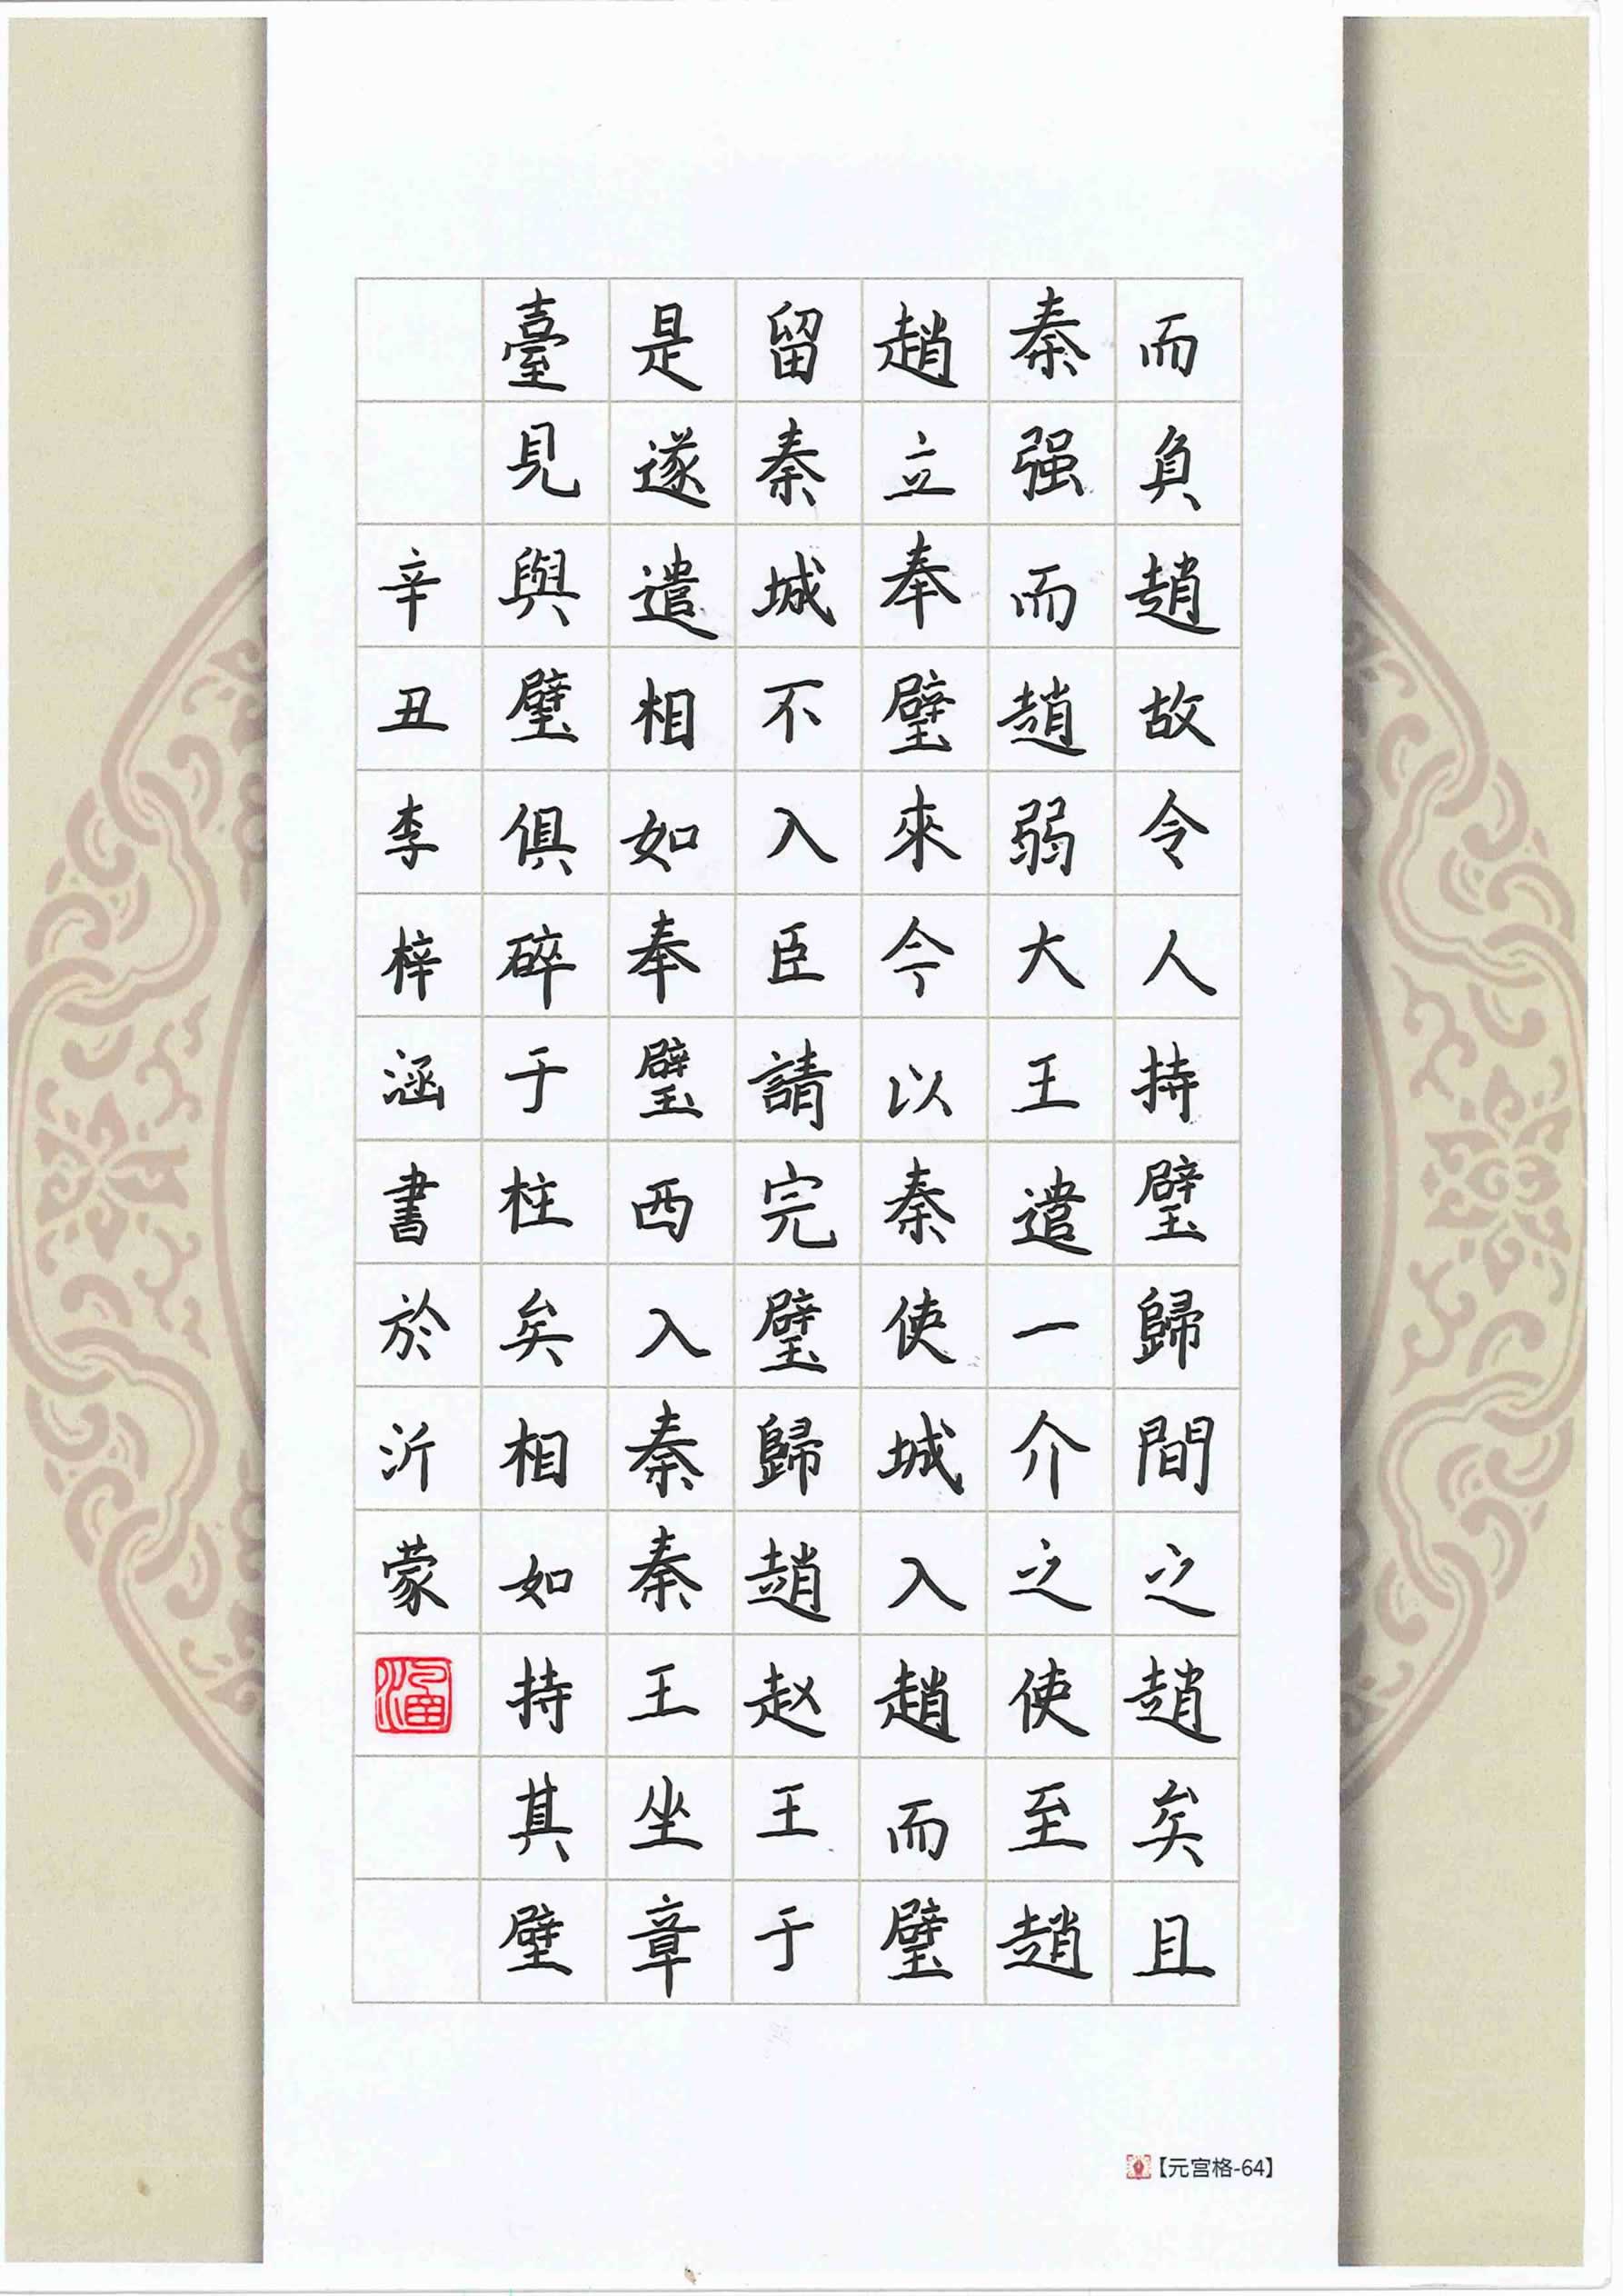 而負趙故令人持璧歸間之趙矣且
秦强而趙弱大王遣一介之使至趙
趙立奉璧來今以秦使城入趙而璧
留秦城不入臣請完璧歸趙赵王于
是遂遣相如奉璧西入秦秦王坐章
臺見與璧俱碎于柱矣相如持其璧
辛丑李梓涵書於沂蒙
【元宫格-64】